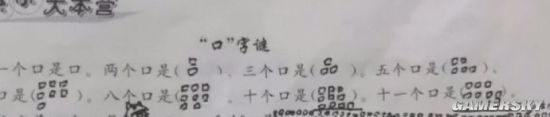 大本营
“口”字谜
一个口是口。两个口是( )、三个口是( )、五个口是( )、
口是( )、八个口是( )、十个口是( )、十一个口是( )。
GAMERSKY